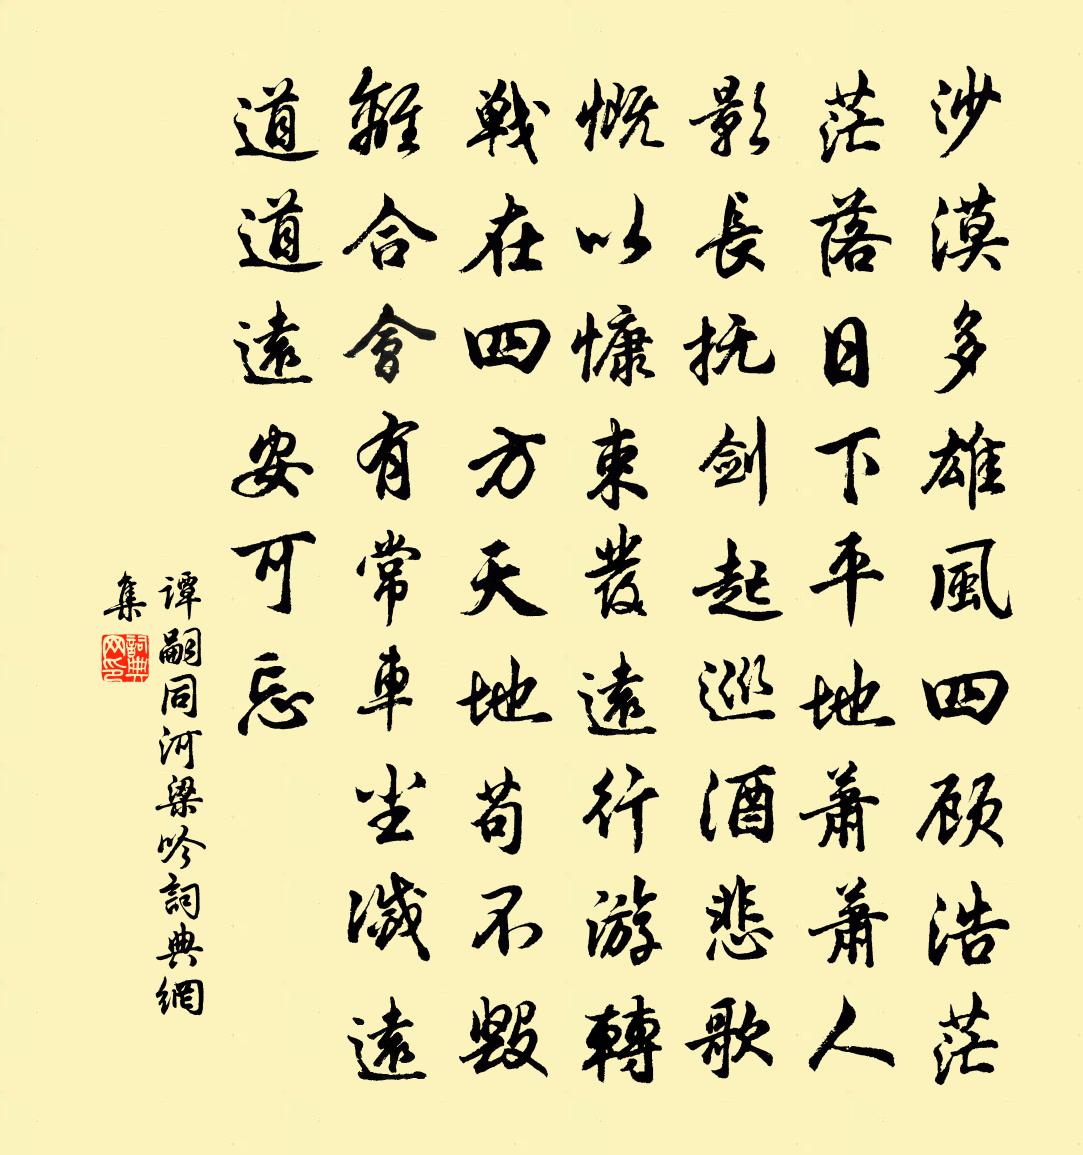 沙漠多雄風四顾浩茫
茫落日下平地蕭蕭人
影長抚剑起巡酒悲歌
慨以慷束發遠行游轉
戦在四方天地苟不毀
離合會有常車尘滅遠
道道遠安可忘
谭嗣同河梁吟詞典網
集
詞典网印